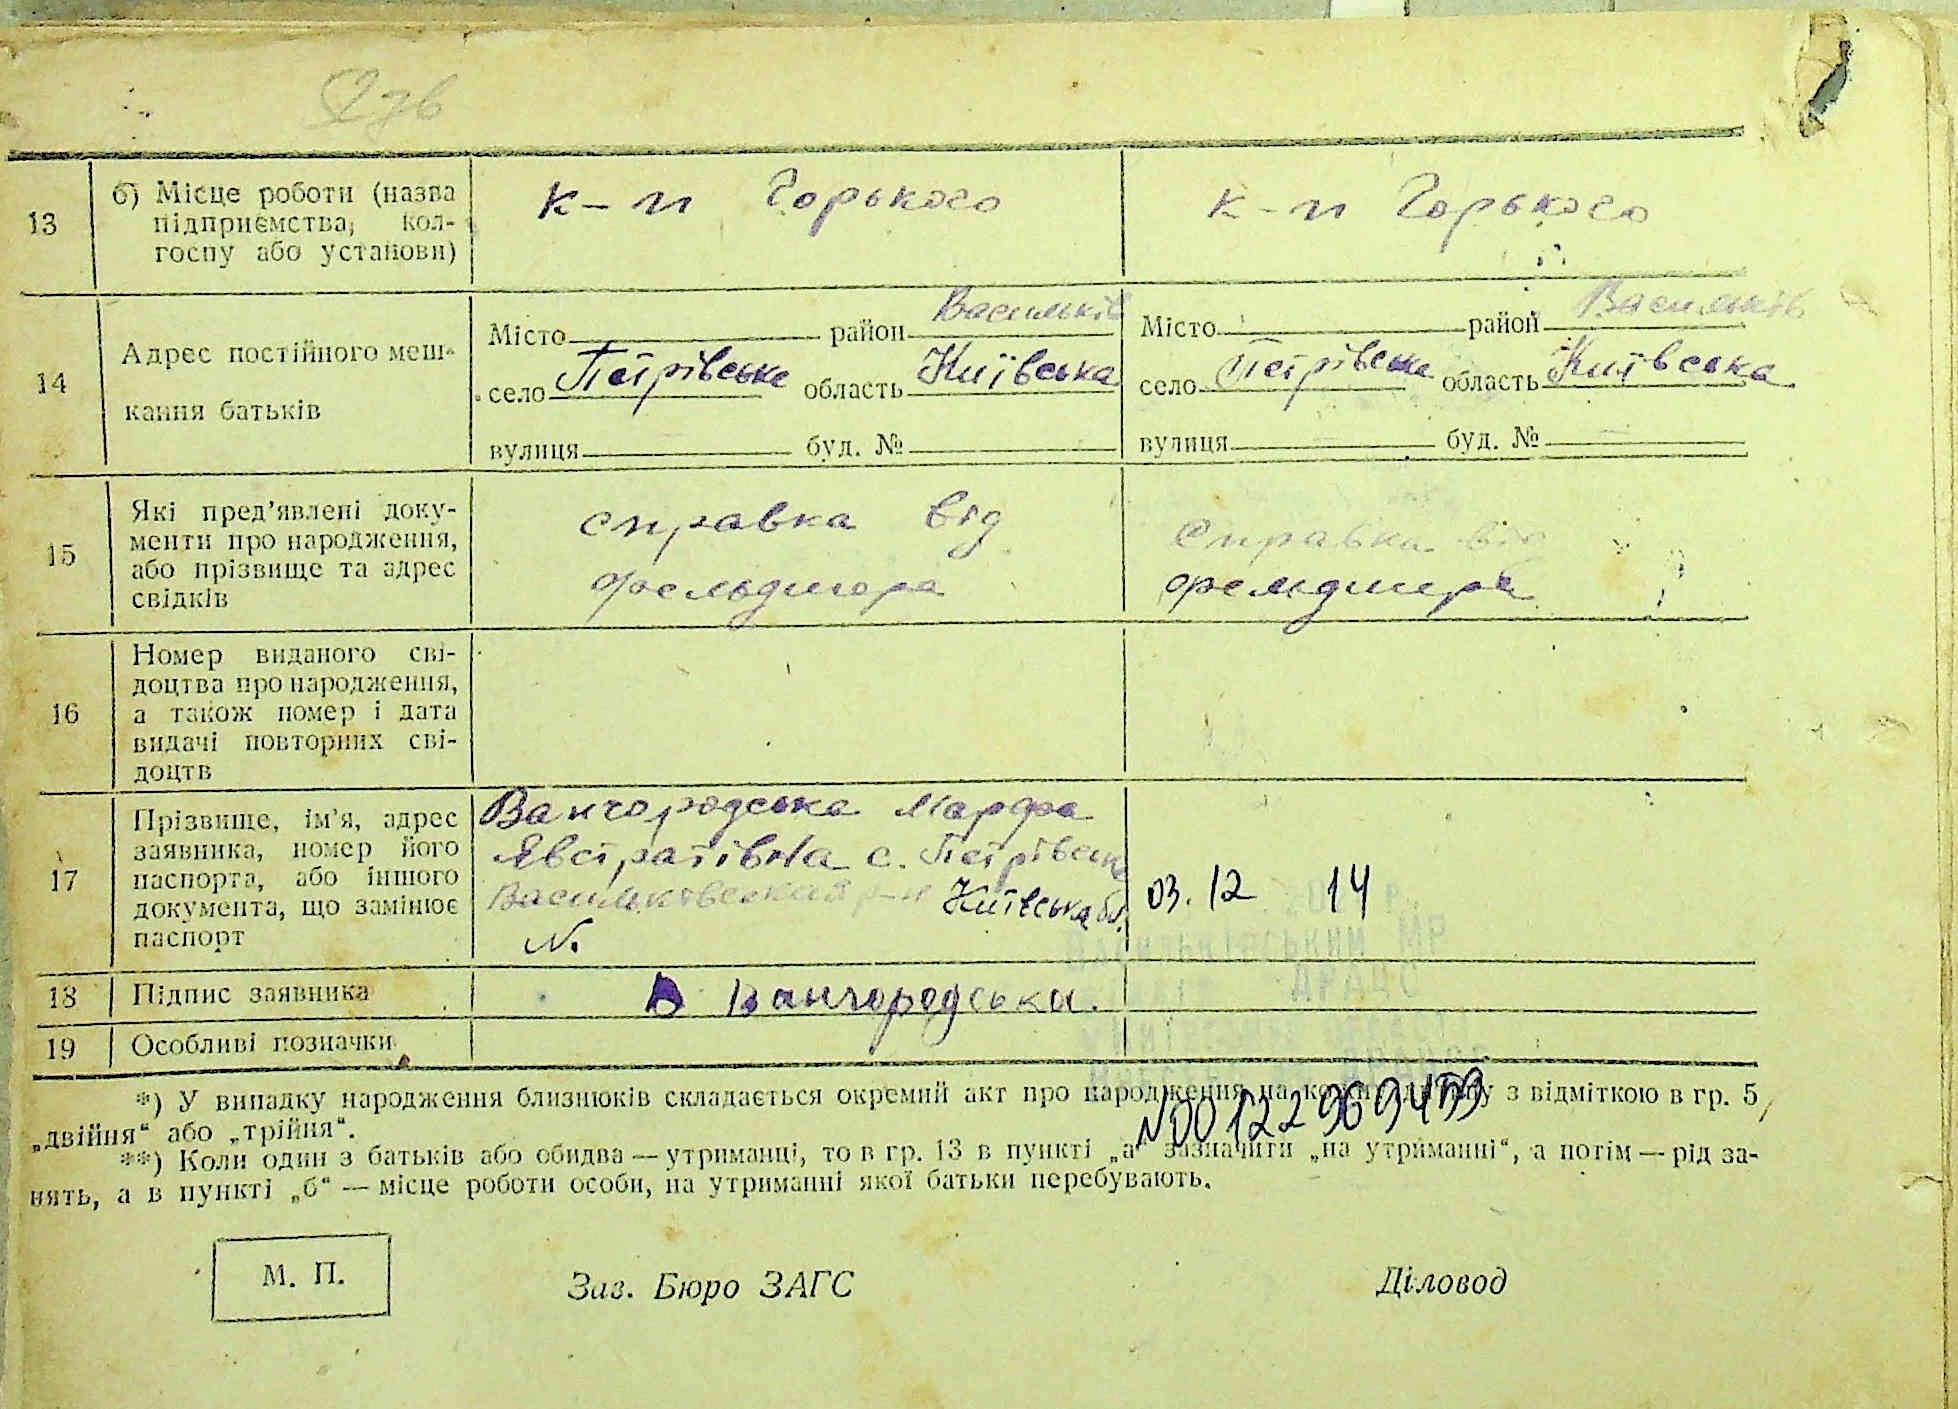 13
б) Місце роботи (назва
підприємства, кол-
госпу або установи)
к-п Горького
к-п Горького
14
Адрес постійного меш-
кання батьків
Місто район Васильків
село Петрівське область Київська
вулиця буд. №
Місто район Васильків
село Петрівське область Київська
вулиця буд. №
15
Які пред'явлені доку-
менти про народження,
або прізвище та адрес
свідків
справка від
фельдшера
Справка від
фельдшера
16
Номер виданого сві-
доцтва про народження,
а також номер і дата
видачі повторних сві-
доцтв
17
Прізвище, ім'я, адрес
заявника, номер його
паспорта, або іншого
документа, що замінює
паспорт
Вангородська Марфа
Явстратівна с. Петрівськ
р-н Київська обл.
№
03.12 14
18
Підпис заявника
В Вангородська.
19
Особливі позначки
*) У випадку народження близнюків складається окремий акт про народження на кожну дитину з відміткою в гр. 5
„двійня“ або „трійня“.
N00122969459
**) Коли один з батьків або обидва — утриманці, то в гр. 13 в пункті „а“ зазначити „на утриманні“, а потім — рід за-
нять, а в пункті „б“ — місце роботи особи, на утриманні якої батьки перебувають.
М. П.
Зав. Бюро ЗАГС
Діловод